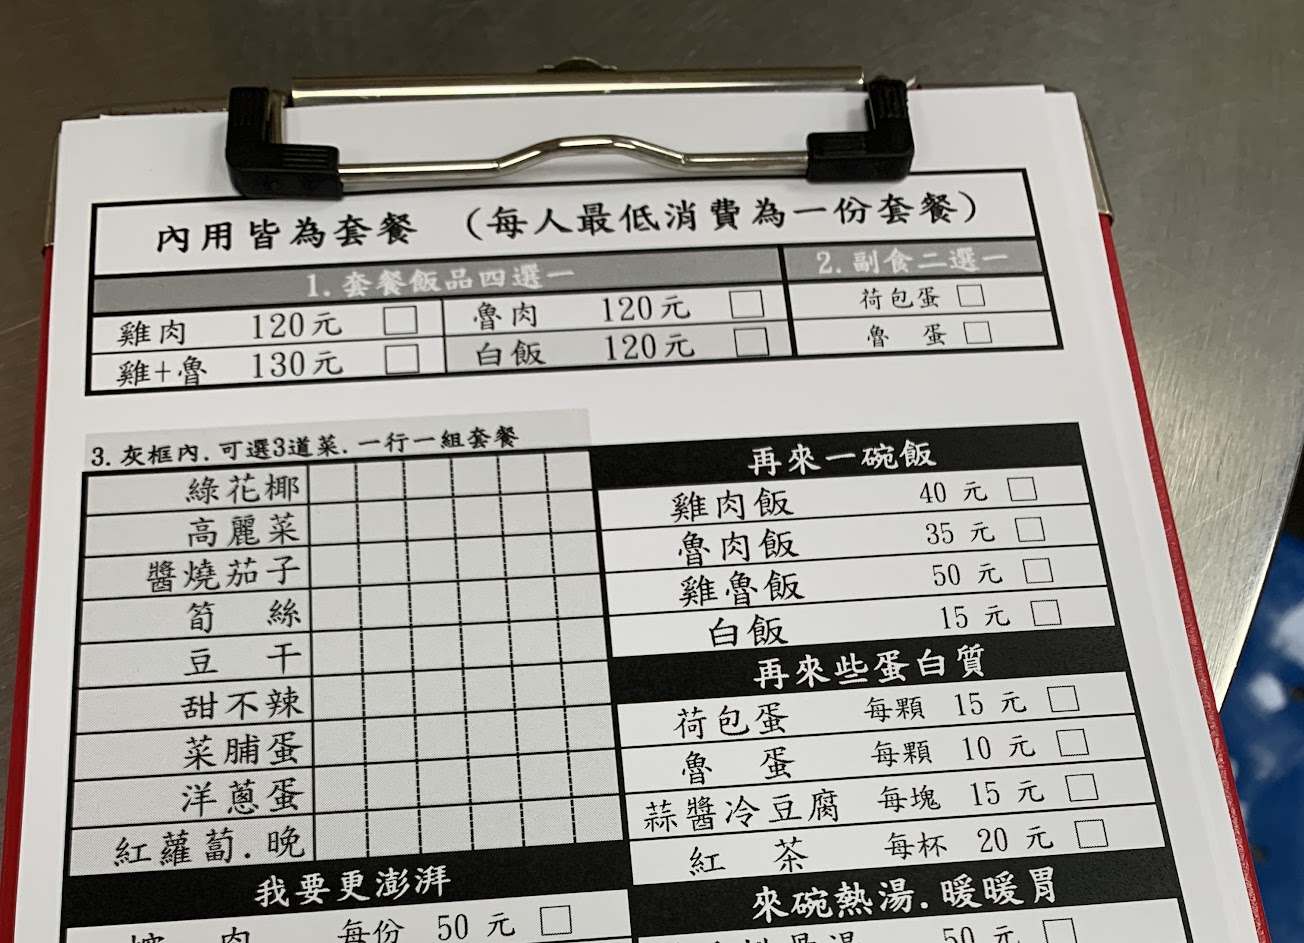 內用皆為套餐 (每人最低消費為一份套餐)
1.套餐飯品四選一
雞肉 120元 □
魯肉 120元 □
雞+魯 130元 □
白飯 120元 □
2.副食二選一
荷包蛋 □
魯 蛋 □
3.灰框內.可選3道菜.一行一組套餐
綠花椰
高麗菜
醬燒茄子
筍 絲
豆 干
甜不辣
菜脯蛋
洋蔥蛋
紅蘿蔔.晚
我要更澎湃
肉 每份 50元 □
再來一碗飯
雞肉飯 40元 □
魯肉飯 35元 □
雞魯飯 50元 □
白飯 15元 □
再來些蛋白質
荷包蛋 每顆 15元 □
魯 蛋 每顆 10元 □
蒜醬冷豆腐 每塊 15元 □
紅 茶 每杯 20元 □
來碗熱湯.暖暖胃
骨湯 50元 □